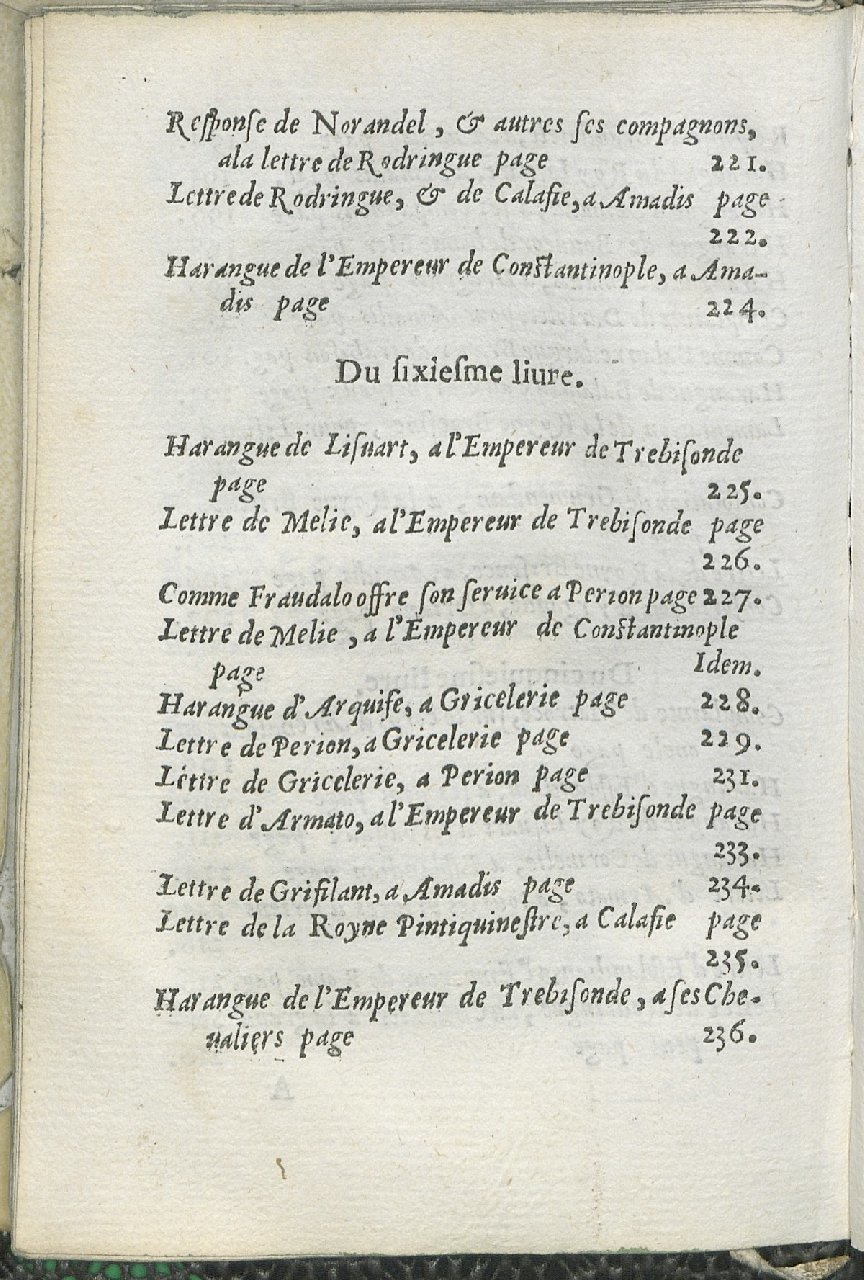 Reſponſe de Norandel, & autres ſes compagnons,
ala lettre de Rodringue page 221.
Lettre de Rodringue, & de Calafie, a Amadis page
222.
Harangue de l'Empereur de Conſtantinople, a Ama-
dis page 224.
Du ſixieſme liure.
Harangue de Liſuart, a l'Empereur de Trebiſonde
page 225.
Lettre de Melie, a l'Empereur de Trebiſonde page
226.
Comme Fraudalo offre ſon ſeruice a Perion page 227.
Lettre de Melie, a l'Empereur de Conſtantinople
page Idem.
Harangue d'Arquife, a Gricelerie page 228.
Lettre de Perion, a Gricelerie page 229.
Lettre de Gricelerie, a Perion page 231.
Lettre d'Armato, a l'Empereur de Trebiſonde page
233.
Lettre de Grifilant, a Amadis page 234.
Lettre de la Royne Pintiquineſtre, a Calafie page
235.
Harangue de l'Empereur de Trebiſonde, a ſes Che-
ualiers page 236.